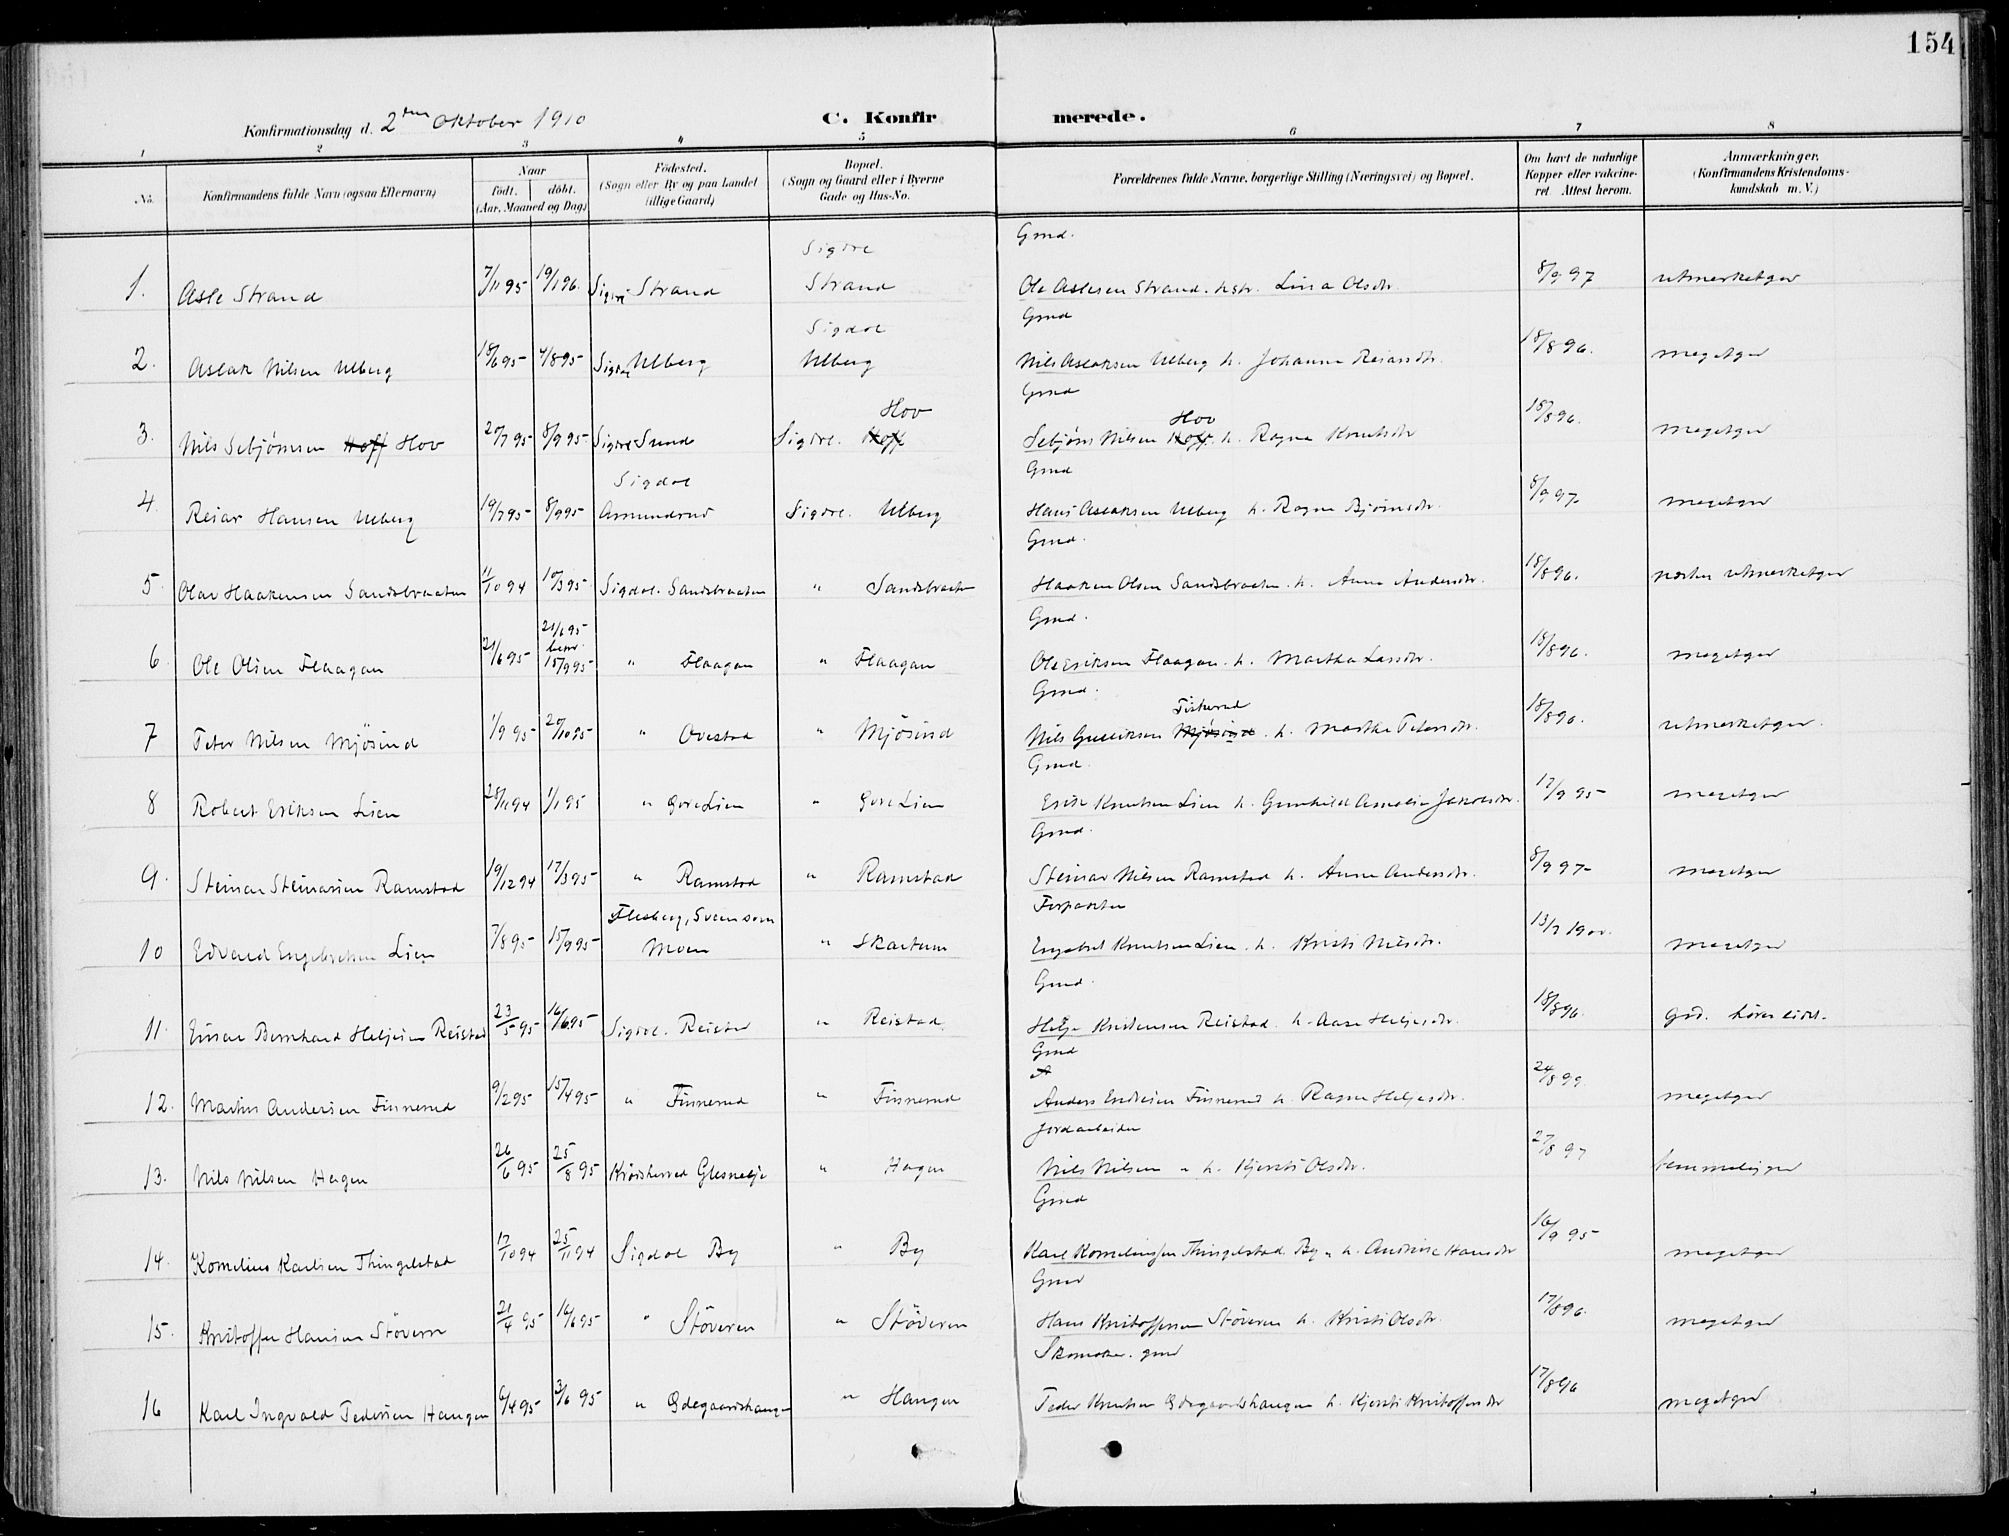 154
Konfirmationsdag d. 2den Oktober 1910
C. Konfirmerede.
1 2 3 4 5 6 7 8
No. Konfirmandens fulde Navn (ogsaa Efternavn) Naar født. døbt. (Aar, Maaned og Dag) Fødested. (Sogn eller By og paa Landet tillige Gaard) Bopæl. (Sogn og Gaard eller i Byerne Gade og Hus-No. Forældrenes fulde Navne, borgerlige Stilling (Næringsvei) og Bopæl. Om havt de naturlige Kopper eller vakcineret. Attest herom. Anmærkninger, (Konfirmandens Kristendomskundskab m. V.)
Sigdol Gmd.
1. Asle Strand 7/11 95 19/1 96. Sigdol Strand Strand Ole Aslesen Strand. hstr. Lina Olsdtr. 8/9 97 utmerketgod
Sigdol Gmd
2. Aslak Nilsen Ulberg 18/6 95 4/8 95 Sigdol Ulberg Ulberg Nils Aslaksen Ulberg h. Johanne Reiarsdtr. 18/8 96. megetgod
Hov Gmd Hov
3. Nils Sebjørnsen Hoff Hov 20/7 95 8/9 95 Sigdol Sund Sigdol. Hoff Sebjørn Nilsen Hoff. h. Ragne Knutsdtr 18/8 96. megetgod
Sigdol Gmd
4. Reiar Hansen Ulberg 19/7 95 8/9 95 Amundrud Sigdol. Ulberg Hans Aslaksen Ulberg h. Ragne Bjørnsdtr. 8/9 97 megetgod
Gmd.
5. Olav Haakensen Sandsbraaten 11/10 94 10/3 95 Sigdol. Sandsbraaten " Sandsbraaten Haaken Olsen Sandsbraaten. h. Anne Andersdtr. 18/8 96. næsten utmerketgod
21/6 95 Gmd.
6. Ole Olsen Flaagan 21/6 95 15/9 95 " Flaagan " Flaagan Ole Eriksen Flaagan. h. Martha Larsdtr. 18/8 96. megetgod
Gmd. Fiskerud
7 Peter Nilsen Mjøsund 1/9 95 20/10 95 " Ovestad " Mjøsund Nils Gulliksen Mjøsund. h. Marthe Petersdtr. 18/8 96. utmerketgod.
Gmd.
8 Robert Eriksen Lien 28/11 94 1/1 95 " Øvre Lien " Øvre Lien Erik Knutsen Lien h. Gunhild Amalie Jakobsdtr. 17/9 95 megetgod
Gmd.
9. Steinar Steinarsen Ramstad 19/12 94 17/3 95 " Ramstad " Ramstad Steinar Nilsen Ramstad h. Anne Andersdtr. 8/9 97 megetgod
Flesberg, Forpagter
10 Edvard Engebretsen Lien 7/8 95 15/9 95 Moen " Skartum Engebret Knutsen Lien. h. Kristi Nilsdtr. 13/7 1900. megetgod
Gmd.
11. Einar Bernhard Helgesen Reistad 23/5 95 16/6 95 Sigdol. Reistad " Reistad. Helge Kristensen Reistad. h. Aase Helgesdtr. 18/8 96. god. hører lidet.
Gmd
12. Martin Andersen Finnerud 9/2 95 15/4 95 " Finnerud " Finnerud Anders Endresen Finnerud h. Ragne Helgesdtr. 24/8 99. megetgod
Jordarbeider
13. Nils Nilsen Hagen 26/6 95 25/8 95 Krødsherred Glesnelje " Hagen Nils Nilsen " h. Kjersti Olsdtr. 27/8 97 temmeliggod
Gmd
14. Kornelius Karlsen Thingelstad 17/10 94 25/11 94 Sigdol By " By Karl Korneliussen Thingelstad By " h. Andrine Hansdtr 16/9 95 megetgod
Gmd
15. Kristoffer Hansen Støveren 21/4 95 16/6 95 " Støveren " Støveren Hans Kristoffersen Støveren h. Kristi Olsdtr. 17/8 96. megetgod
Skomaker. gmd
16 Karl Ingvald Pedersen Haugen 6/4 95 3/6 95 " Ødegaardshaugen " Haugen Peder Knutsen Ødegaardshaugen h. Kjersti Kristoffersdtr 17/8 96 megetgod